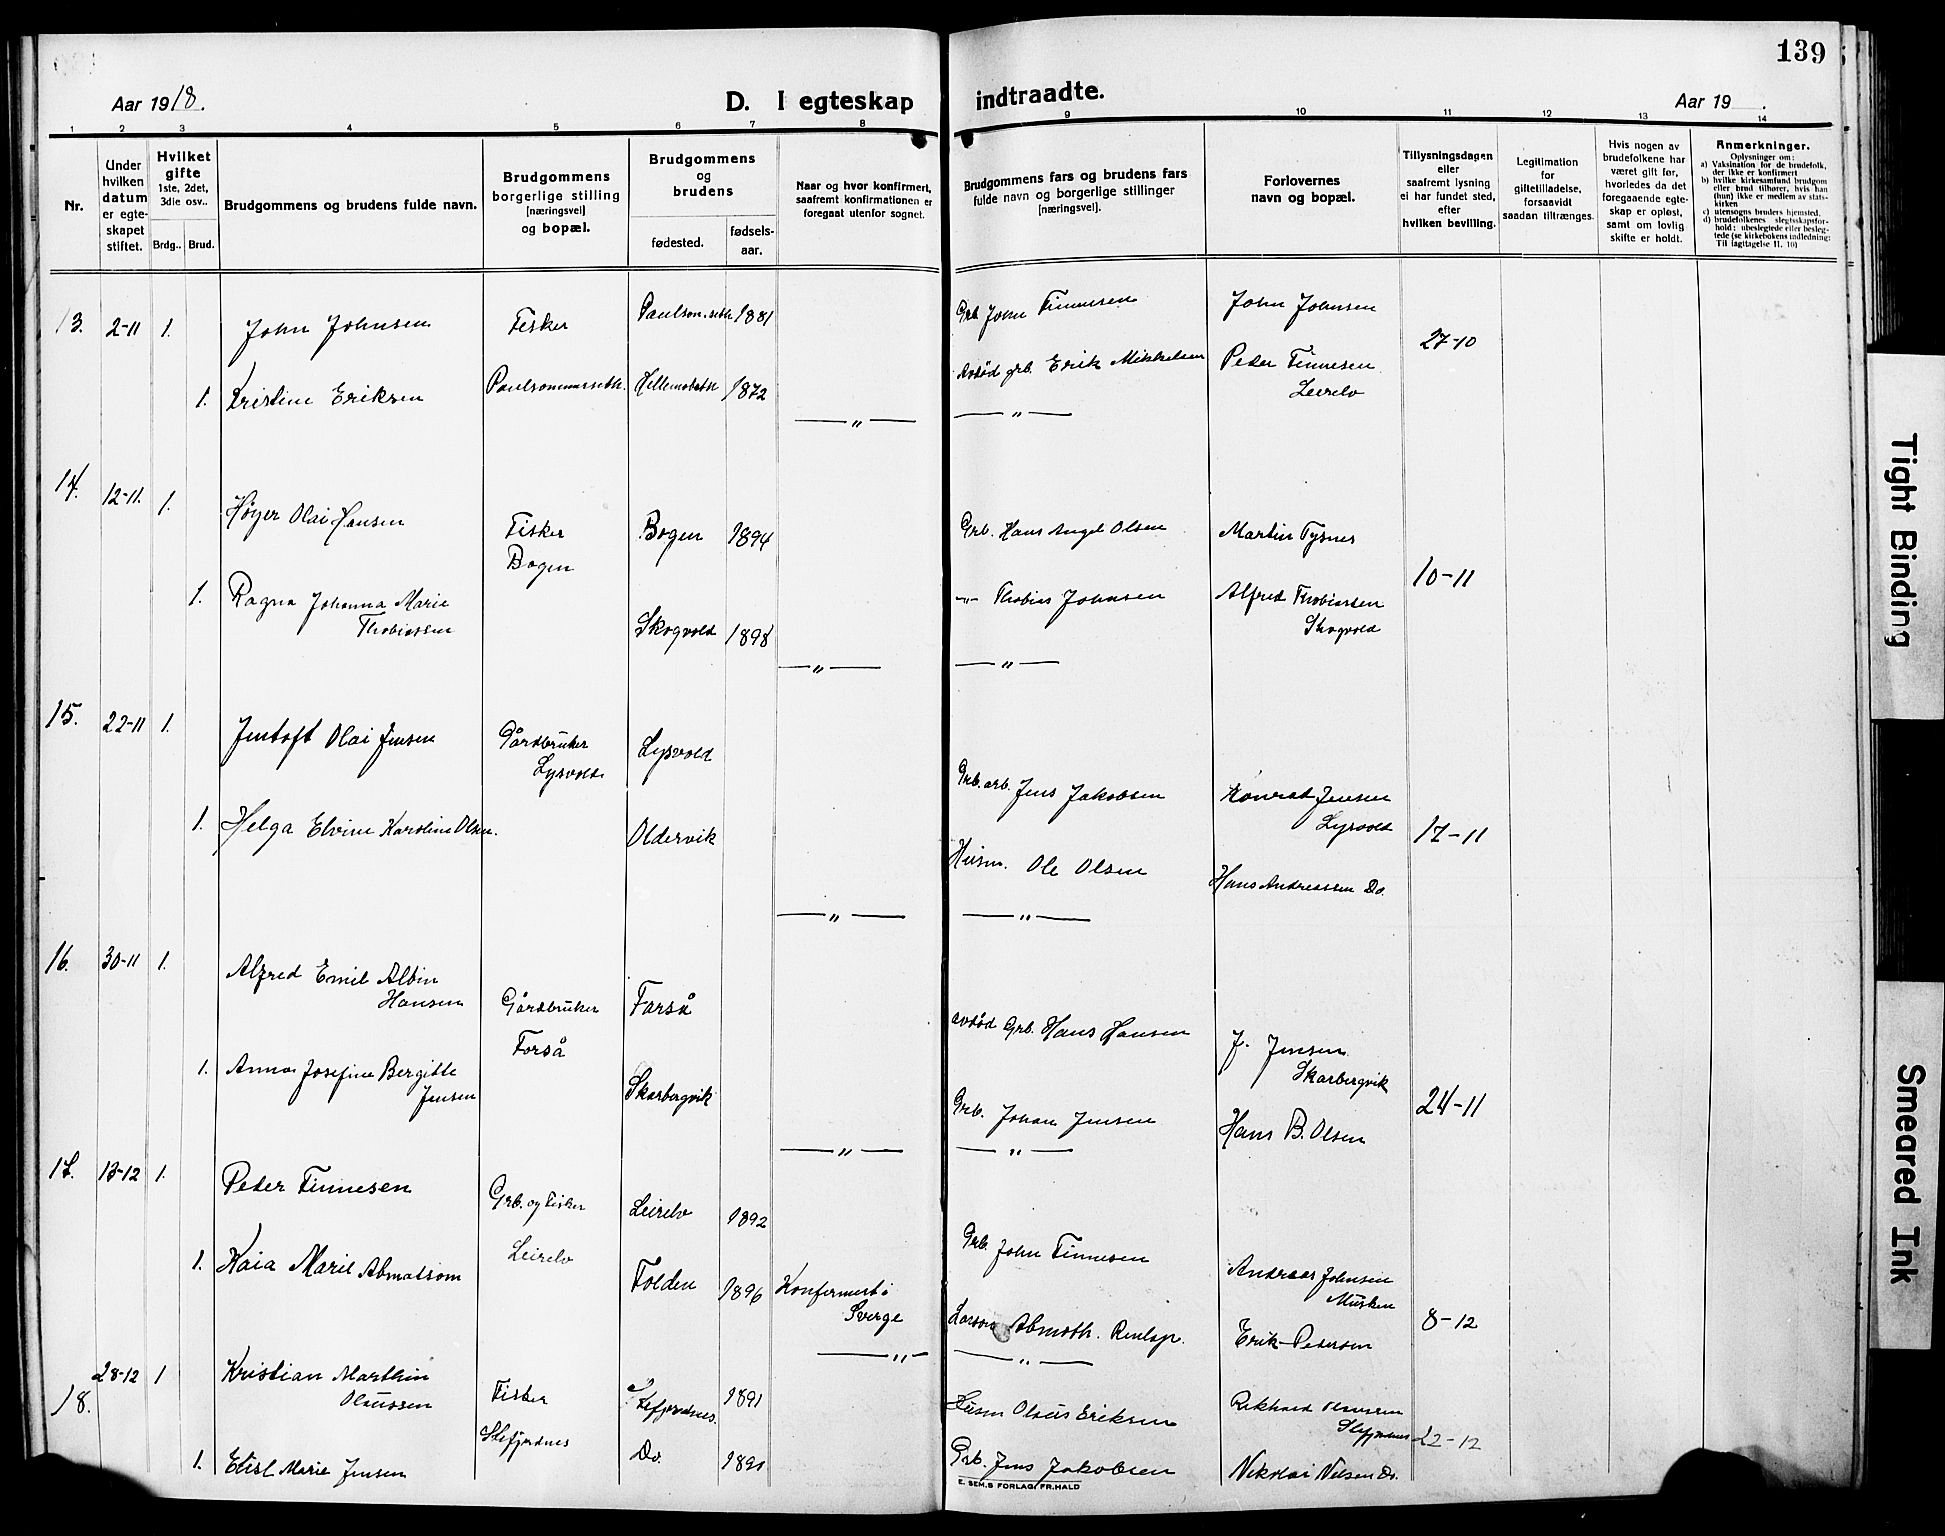 139
Aar 1918.
D. I egteskap
indtraadte.
Aar 19 .
1 2 3 4 5 6 7 8 9 10 11 12 13 14
Nr.
Under
hvilken
datum
er egte-
skapet
stiftet.
Hvilket
gifte
1ste, 2det,
3die osv..
Brdg.. Brud.
Brudgommens og brudens fulde navn.
Brudgommens
borgerlige stilling
[næringsvei]
og bopæl.
Brudgommens
og
brudens
fødested.
fødsels-
aar.
Naar og hvor konfirmert,
saafremt konfirmationen er
foregaat utenfor sognet.
Brudgommens fars og brudens fars
fulde navn og borgerlige stillinger
[næringsvei].
Forlovernes
navn og bopæl.
Tillysningsdagen
eller
saafremt lysning
ei har fundet sted,
efter
hvilken bevilling.
Legitimation
for
giftetilladelse,
forsaavidt
saadan tiltrænges.
Hvis nogen av
brudefolkene har
været gift før,
hvorledes da det
foregaaende egte-
skap er opløst,
samt om lovlig
skifte er holdt.
Anmerkninger.
Oplysninger om:
a) Vaksination for de brudefolk,
der ikke er konfirmert
b) hvilke kirkesamfund brudgom
eller brud tilhører, hvis han
(hun) ikke er medlem av stats-
kirken
c) utensogns bruders hjemsted.
d) brudefolkenes slegtsskapsfor-
hold: ubeslegtede eller besleg-
tede (se kirkebokens indledning:
Til iagttagelse II. 10)
13. 2-11 1. John Johnsen Fisker 1881 Grb. John Finnesen John Johnsen 27-10
1. Kristine Eriksen 1872 Avdød grb. Erik Mikkelsen Peder Finnesen
Leirelv
— " — — " —
14. 12-11. 1. Høyer Olai Hansen Fisker Bogen 1894 Grb. Hans Angel Olsen Martin Tysnes
Bogen
10-11
1. Ragna Johanna Marie
Thobiassen Skogvold 1898 -"- Thobias Johnsen Alfred Thobiassen
Skogvold
— " — — " —
15. 22-11 1. Jentoft Olai Jensen Gårdbruker Lysvold
Lysvold
Grb. arb. Jens Jakobsen Konrad Jensen
Lysvold 17-11
1. Helga Elvine Karoline Olsen. Oldervik Husm. Ole Olsen Hans Andreassen Do.
— " — — " —
16. 30-11 1. Alfred Emil Albin
Hansen Gårdbruker Forså avdød Grb. Hans Hansen J. Jensen
Forså Skarbergvik
1. Anna Josefine Bergitte
Jensen Skarbergvik Grb. Johan Jensen Hans B. Olsen 24-11
— " — — " —
17. 13-12 1. Peder Finnesen Grb. og Fisker Leirelv 1892 Grb. John Finnesen Andreas Johnsen
Leirelv Musken
1. Kaia Marie Abmatsom Folden 1896 Konfirmert i
Sverge Abmoth. Renlap. Erik Pedersen 8-12
— " — — " —
18. 28-12 1 Kristian Marthin
Olaussen Fisker 1891 Husm Olaus Eriksen Rikhard Olaussen
Slefjordnes Slefjordnes 22-12
1. Etisl Marie Jensen Do. 1891 Grb. Jens Jakobsen Nikolai Nilsen Do.
E. SEM.S FORLAG, FR.HALD
Tight Binding
Smeared Ink